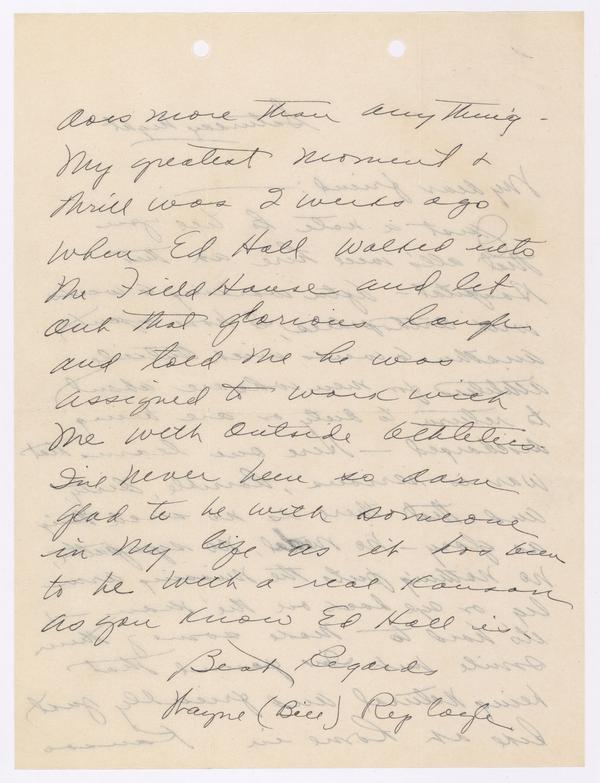 does more than anything -
My greatest moment &
thrill was 2 weeks ago
when Ed Hall walked into
the Field House and let
out that glorious laugh
and told me he was
assigned to work with
me with outside athletics
I've never been so darn
glad to be with someone
in my life as it has been
to be with a real Kansan
as you know Ed Hall is.
Best Regards
Wayne (Bill) Replogle